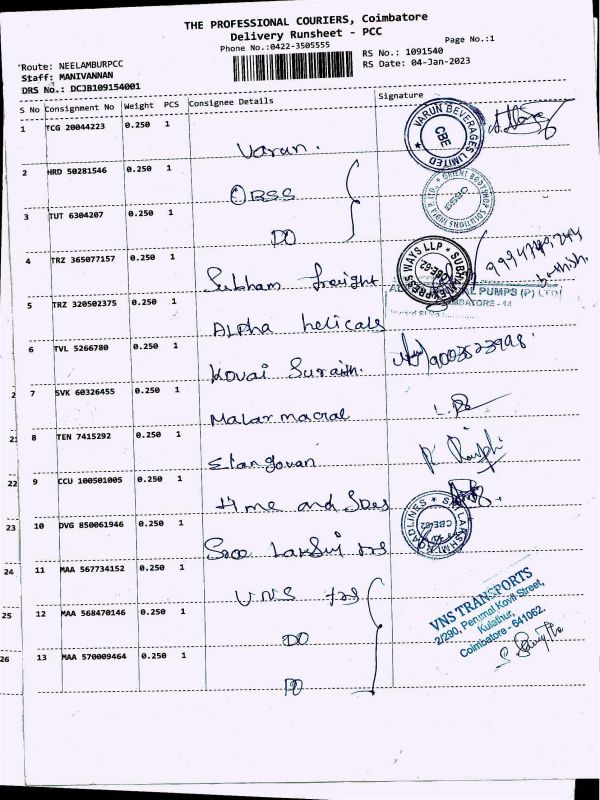 THE PROFESSIONAL COURIERS, Coimbatore
Delivery Runsheet - PCC
Phone No.:0422-3505555
Page No.:1
Route: NEELAMBURPCC
RS No.: 1091540
Staff: MANIVANNAN
RS Date: 04-Jan-2023
DRS No.: DCJB109154001
S No Consignment No Weight PCS Consignee Details Signature
1 TCG 20044223 0.250 1
Varun.
VARUN BEVERAGES LIMITED
CBE
2 HRD 50281546 0.250 1
OBSS
ORIENT BODYSHOP SOLUTIONS INDIA P. LTD.
OBSS
3 TUT 6304207 0.250 1
DO
4 TRZ 365077157 0.250 1
Subham freight
EXPRESS WAYS LLP
CBE-62
5 TRZ 320502375 0.250 1
Alpha helicals
PUMPS (P) LTD
COIMBATORE - 14
6 TVL 5266780 0.250 1
Kovai
9003523998
2 7 SVK 60326455 0.250 1
Malar macral
21 8 TEN 7415292 0.250 1
Elangovan
22 9 CCU 100501005 0.250 1
Time and
23 10 DVG 850061946 0.250 1
Sree Lakshmi
SRI LAKSHMI ROADLINES
CBE-62
24 11 MAA 567734152 0.250 1
VNS
VNS TRANSPORTS
2/290, Perumal Kovil Street,
Kulathur,
Coimbatore - 641062.
25 12 MAA 568470146 0.250 1
DO
26 13 MAA 570009464 0.250 1
DO